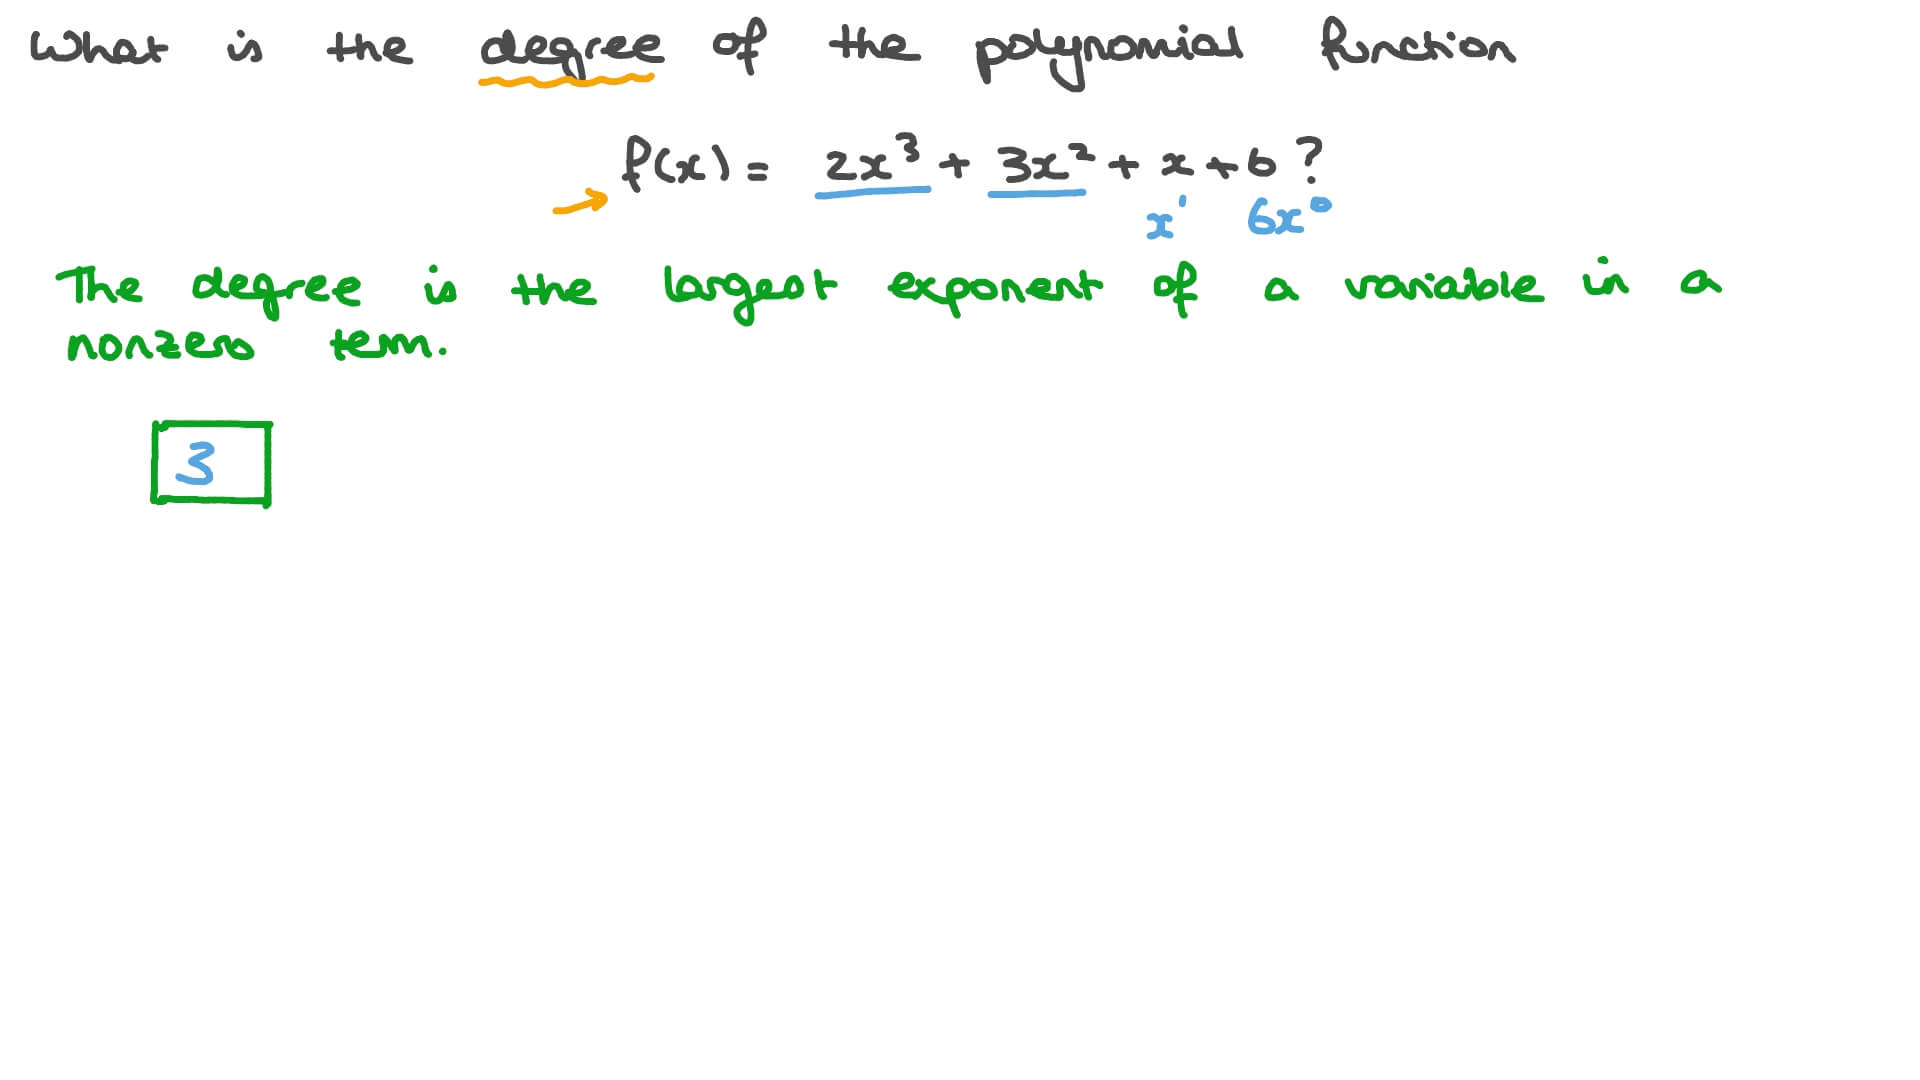 What is the degree of the polynomial function
f(x) = 2x³ + 3x² + x + 6 ?
x¹ 6x⁰
The degree is the largest exponent of a variable in a
nonzero term.
3